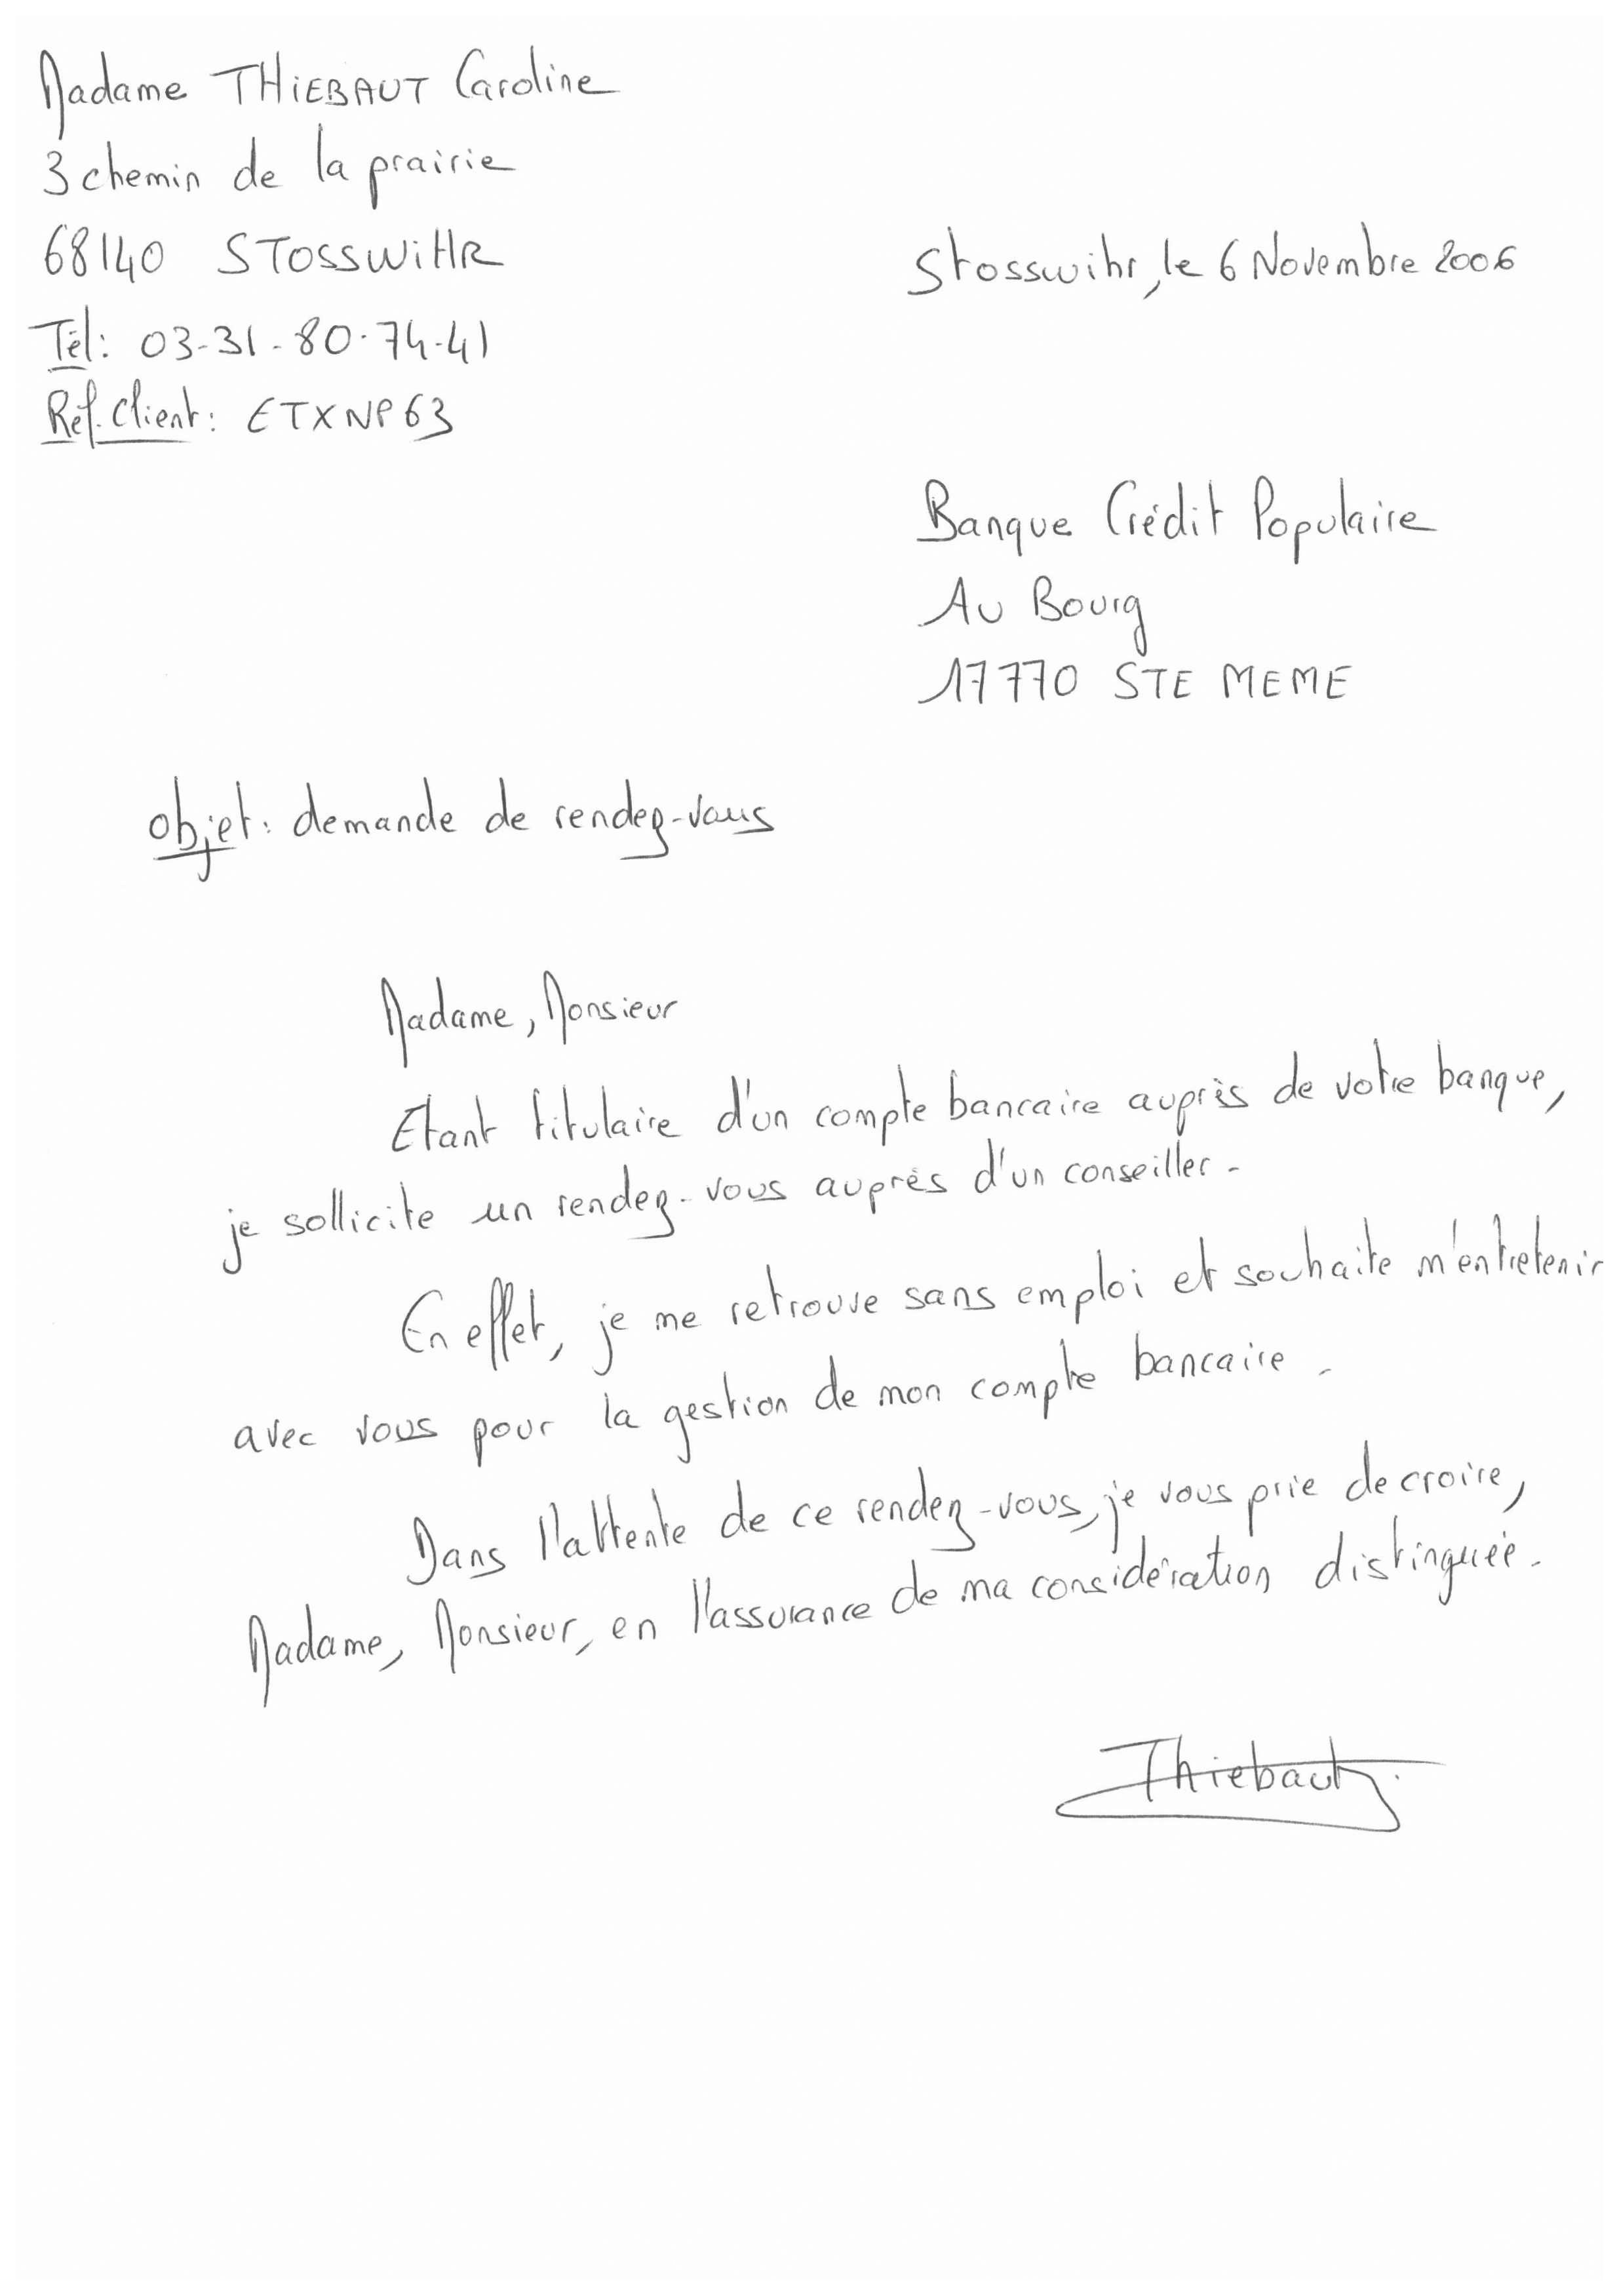 Madame THIEBAUT Caroline
3 chemin de la prairie
68140 STOSSWIHR
Stosswihr, le 6 Novembre 2006
Tél: 03-31-80-74-41
Réf. Client: ETXNP63
Banque Crédit Populaire
Au Bourg
17770 STE MEME
objet: demande de rendez-vous
Madame, Monsieur
Etant titulaire d'un compte bancaire auprès de votre banque,
je sollicite un rendez-vous auprès d'un conseiller.
En effet, je me retrouve sans emploi et souhaite m'entretenir
avec vous pour la gestion de mon compte bancaire.
Dans l'attente de ce rendez-vous, je vous prie de croire,
Madame, Monsieur, en l'assurance de ma considération distinguée.
Thiebaut